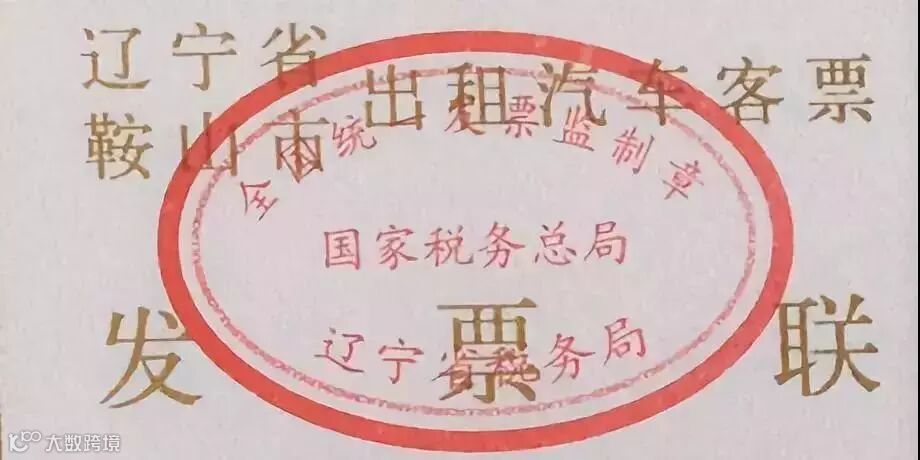 辽宁省
鞍山市
出租汽车客票
全国统一发票监制章
国家税务总局
辽宁省税务局
发票联
大数跨境